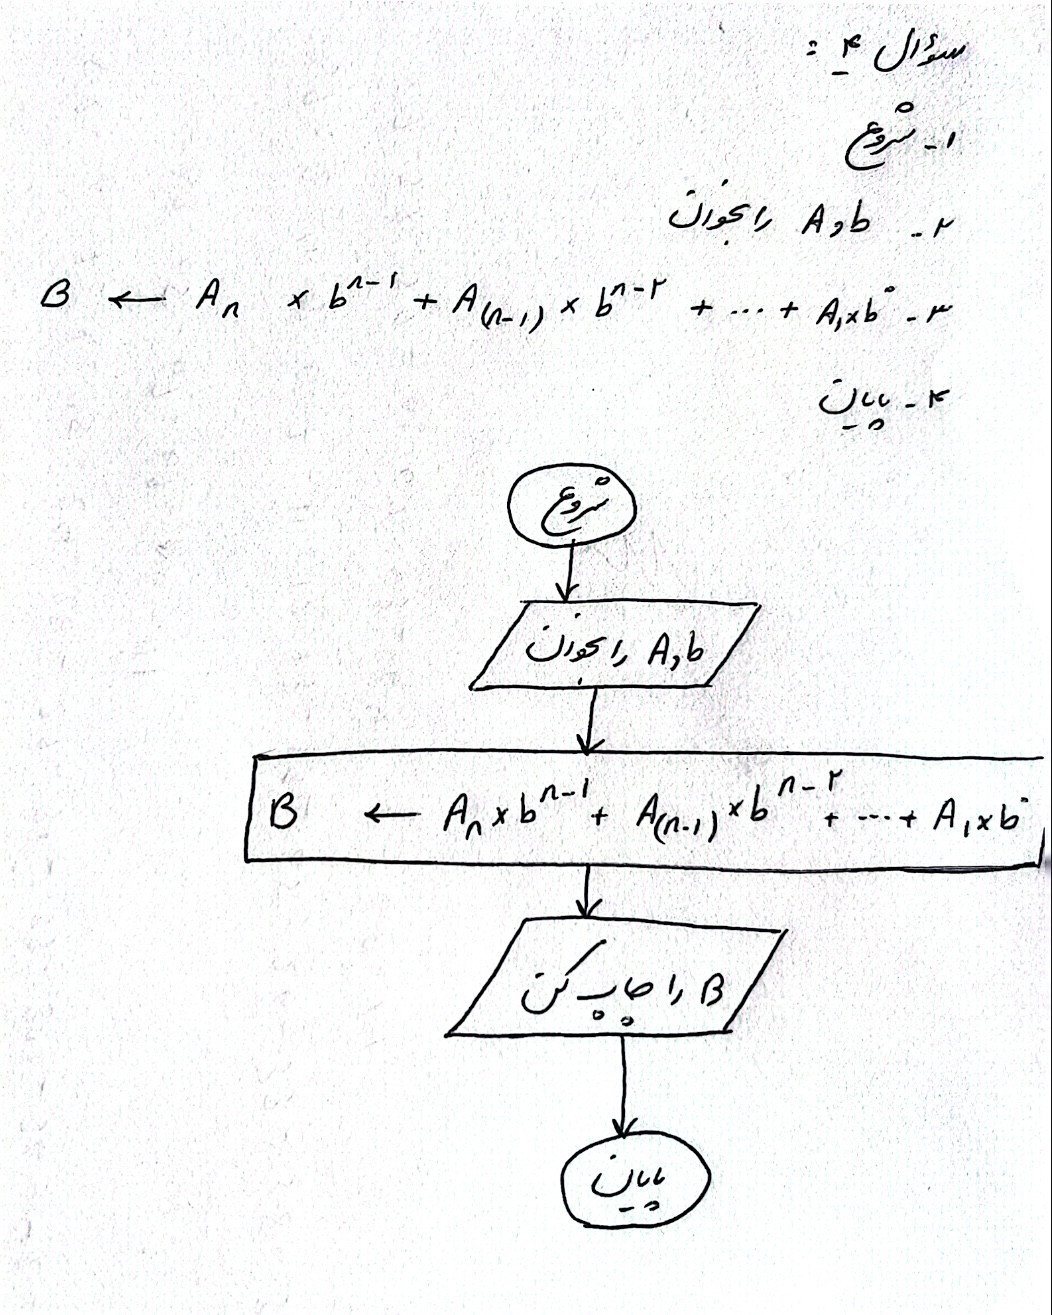 سؤال ۴:
۱- شروع
۲- A,b را بخوان
۳- B ← Aₙ × bⁿ⁻¹ + A₍ₙ₋₁₎ × bⁿ⁻² + ... + A₁×b⁰
۴- پایان
شروع
A,b را بخوان
B ← Aₙ × bⁿ⁻¹ + A₍ₙ₋₁₎ × bⁿ⁻² + ... + A₁×b⁰
B را چاپ کن
پایان